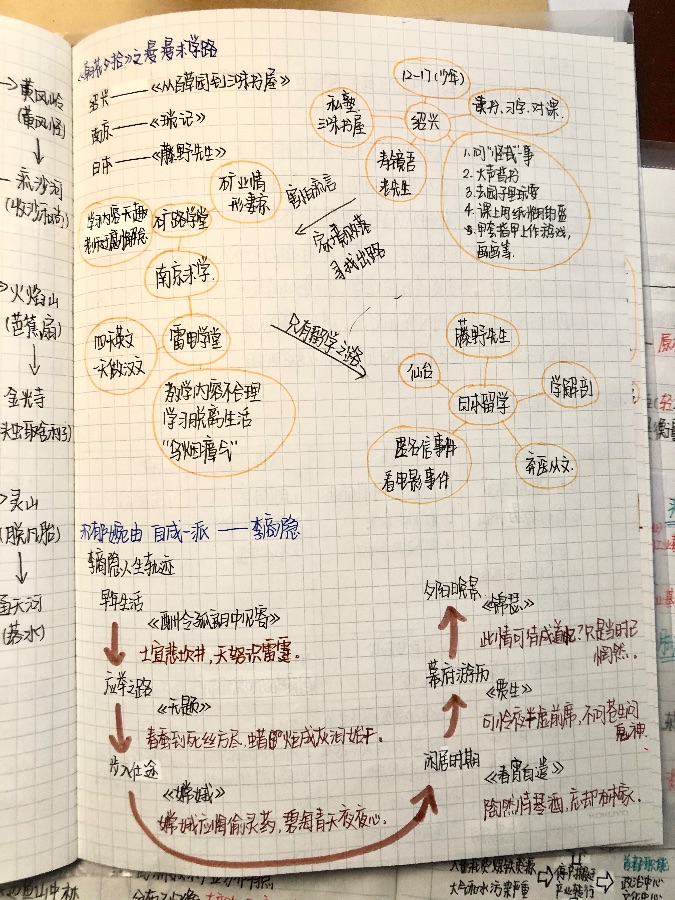 《朝花夕拾》之漫漫求学路
绍兴——《从百草园到三味书屋》
南京——《琐记》
日本——《藤野先生》
12-17(少年)
私塾
三味书屋
绍兴
读书、习字、对课
寿镜吾
老先生
1.问"怪哉"一事
2.大声背书
3.去园子里玩耍
5.用套指甲上作游戏,
画画等.
矿业情
形萎凉
矿路学堂
学习内容无趣
南京求学.
害怕流言
家贫败落
寻找出路
四天英文
一天做汉文
雷电学堂
教学内容不合理
学习脱离生活
"乌烟瘴气"
只有留学之路
藤野先生
仙台
日本留学
学解剖
匿名信事件
看电影事件
弃医从文.
自成一派——李商隐
李商隐人生轨迹
早年生活
《酬令狐郎中见寄》
土宜悲坎井,天怒识雷霆。
应举之路
《无题》
春蚕到死丝方尽,蜡炬成灰泪始干。
步入仕途
《嫦娥》
嫦娥应悔偷灵药,碧海青天夜夜心。
夕阳晚景
《锦瑟》
此情可待成追忆?只是当时已
惘然。
幕府游历
《贾生》
可怜夜半虚前席,不问苍生问
鬼神.
闲居时期
《春宵自遣》
陶然恃琴酒,忘却在山家.
黄风岭
(黄风怪)
流沙河
(收沙和尚)
火焰山
(芭蕉扇)
金光寺
灵山
(脱凡胎)
通天河
(落水)
政治中心